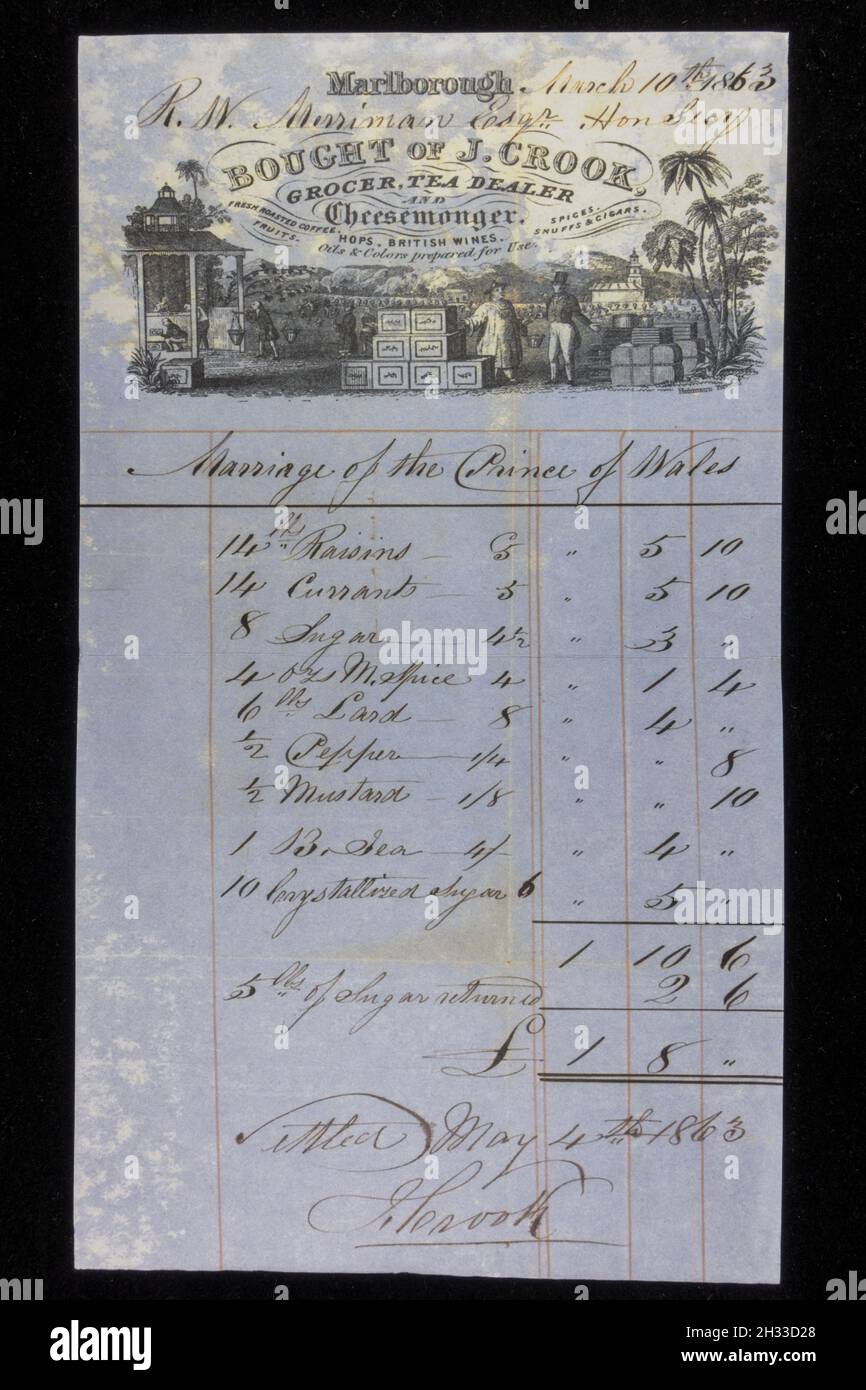 Marlborough March 10th 1863
R. W. Merriman Esqr. Hon Secy
BOUGHT OF J. CROOK,
GROCER, TEA DEALER
AND
Cheesemonger.
FRESH ROASTED COFFEE,
FRUITS.
SPICES,
SNUFFS & CIGARS.
HOPS, BRITISH WINES.
Oils & Colors prepared for Use.
Marriage of the Prince of Wales
14 lbs Raisins — 5 " 5 10
14 Currants — 5 " 5 10
8 Sugar — 4½ " 3 "
4 ozs M. Spice 4 " 1 4
6 lbs Lard — 8 " 4 "
½ Pepper — 1/4 " " 8
½ Mustard — 1/8 " " 10
1 B. Tea — 4/- " 4 "
10 Crystallized Sugar 6 " 5 "
1 10 6
5 lbs of Sugar returned 2 6
£ 1 8 "
Settled May 4th 1863
J Crook
alamy
Image ID: 2H33D28
www.alamy.com